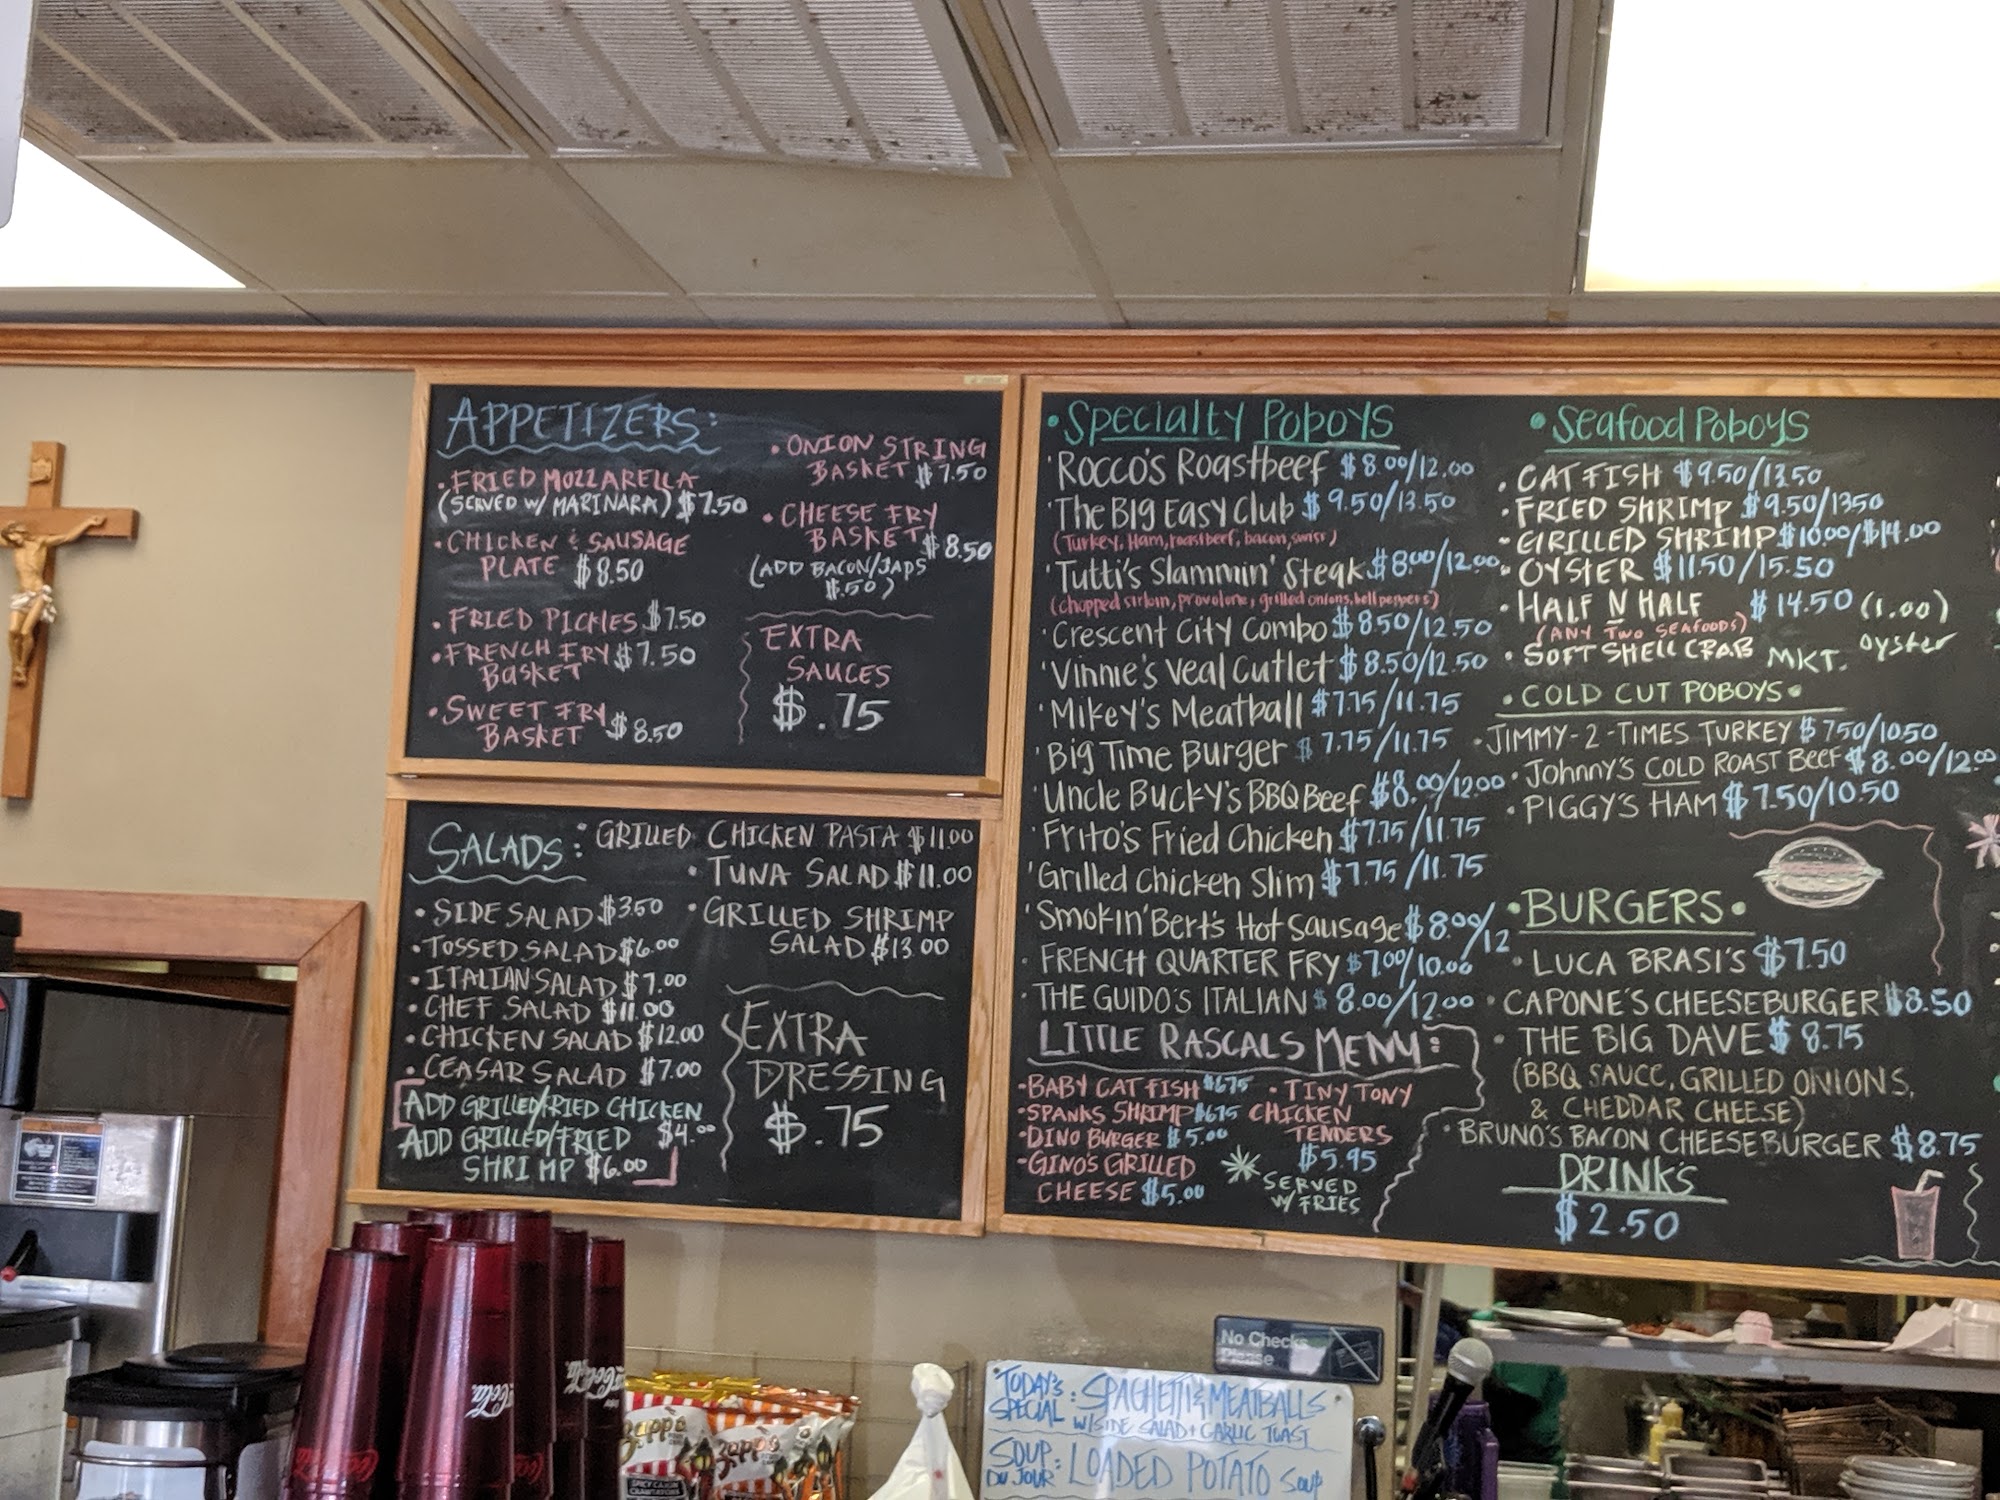 APPETIZERS:
• FRIED MOZZARELLA
(SERVED W/ MARINARA) $7.50
• CHICKEN & SAUSAGE
PLATE $8.50
• FRIED PICKLES $7.50
• FRENCH FRY $7.50
BASKET
• SWEET FRY
BASKET $8.50
• ONION STRING
BASKET $7.50
• CHEESE FRY
BASKET $8.50
(ADD BACON/JAPS
$.50)
EXTRA
SAUCES
$.75
SALADS:
• GRILLED CHICKEN PASTA $11.00
• TUNA SALAD $11.00
• GRILLED SHRIMP
SALAD $13.00
• SIDE SALAD $3.50
• TOSSED SALAD $6.00
• ITALIAN SALAD $7.00
• CHEF SALAD $11.00
• CHICKEN SALAD $12.00
• CEASAR SALAD $7.00
ADD GRILLED/FRIED CHICKEN
$4.00
ADD GRILLED/FRIED
SHRIMP $6.00
EXTRA
DRESSING
$.75
• Specialty Poboys
• Rocco's Roastbeef $8.00/12.00
• The Big Easy Club $9.50/13.50
(Turkey, Ham, roastbeef, bacon, swiss)
• Tutti's Slammin' Steak $8.00/12.00
(chopped sirloin, provolone, grilled onions, bell peppers)
• Crescent City Combo $8.50/12.50
• Vinnie's Veal Cutlet $8.50/12.50
• Mikey's Meatball $7.75/11.75
• Big Time Burger $7.75/11.75
• Uncle Bucky's BBQ Beef $8.00/12.00
• Frito's Fried Chicken $7.75/11.75
• Grilled Chicken Slim $7.75/11.75
• Smokin' Bert's Hot Sausage $8.00/12
• FRENCH QUARTER FRY $7.00/10.00
• THE GUIDO'S ITALIAN $8.00/12.00
LITTLE RASCALS MENU:
• BABY CATFISH $6.75
• SPANKS SHRIMP $6.75
• DINO BURGER $5.00
• GINO'S GRILLED
CHEESE $5.00
• TINY TONY
CHICKEN
TENDERS
$5.95
SERVED
W/ FRIES
• Seafood Poboys
• CATFISH $9.50/13.50
• FRIED SHRIMP $9.50/1350
• GRILLED SHRIMP $10.00/$14.00
• OYSTER $11.50/15.50
• HALF N HALF $14.50 (1.00)
(ANY TWO SEAFOODS) oyster
• SOFT SHELL CRAB MKT.
• COLD CUT POBOYS •
• JIMMY-2-TIMES TURKEY $750/10.50
• Johnny's COLD ROAST Beef $8.00/12.00
• PIGGY'S HAM $7.50/10.50
• BURGERS •
• LUCA BRASI'S $7.50
• CAPONE'S CHEESEBURGER $8.50
• THE BIG DAVE $8.75
(BBQ SAUCE, GRILLED ONIONS,
& CHEDDAR CHEESE)
• BRUNO'S BACON CHEESEBURGER $8.75
DRINKS
$2.50
No Checks
Please
TODAY'S SPECIAL: SPAGHETTI & MEATBALLS
W/SIDE SALAD + GARLIC TOAST
SOUP DU JOUR: LOADED POTATO SOUP
Coca-Cola
Zapp's
Zapp's
SPICY CAJUN
CRAWTATORS